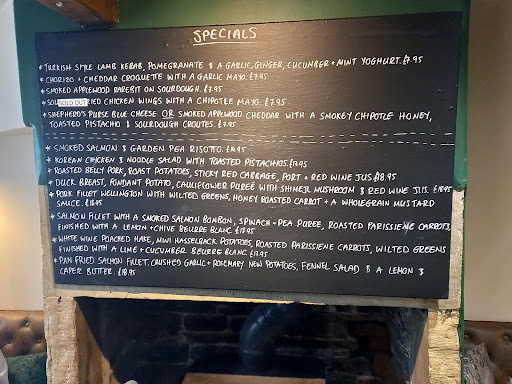 SPECIALS
* TURKISH STYLE LAMB KEBAB, POMEGRANATE & A GARLIC, GINGER, CUCUMBER + MINT YOGHURT. £7.95
* CHORIZO + CHEDDAR CROQUETTE WITH A GARLIC MAYO. £7.95
* SMOKED APPLEWOOD RAREBIT ON SOURDOUGH. £7.95
* SOLD OUT IED CHICKEN WINGS WITH A CHIPOTLE MAYO. £7.95
* SHEPHERD'S PURSE BLUE CHEESE OR SMOKED APPLEWOOD CHEDDAR WITH A SMOKEY CHIPOTLE HONEY,
TOASTED PISTACHIO & SOURDOUGH CROUTES.
* SMOKED SALMON & GARDEN PEA RISOTTO.
* KOREAN CHICKEN & NOODLE SALAD WITH TOASTED PISTACHIOS.
* ROASTED BELLY PORK, ROAST POTATOES, STICKY RED CABBAGE, PORT + RED WINE JUS. £18.95
* DUCK BREAST, FONDANT POTATO, CAULIFLOWER PUREE WITH SHIMEJI MUSHROOM & RED WINE JUS.
* PORK FILLET WELLINGTON WITH WILTED GREENS, HONEY ROASTED CARROT + A WHOLEGRAIN MUSTARD
SAUCE. £18.95
* SALMON FILLET WITH A SMOKED SALMON BONBON, SPINACH + PEA PUREE, ROASTED PARISIENE CARROTS,
FINISHED WITH A LEMON + CHIVE BEURRE BLANC.
* WHITE WINE POACHED HAKE, MINI HASSELBACK POTATOES, ROASTED PARISIENE CARROTS, WILTED GREENS
FINISHED WITH A LIME + CUCUMBER BEURRE BLANC.
* PAN FRIED SALMON FILLET, CRUSHED GARLIC + ROSEMARY NEW POTATOES, FENNEL SALAD & A LEMON &
CAPER BUTTER. £18.95